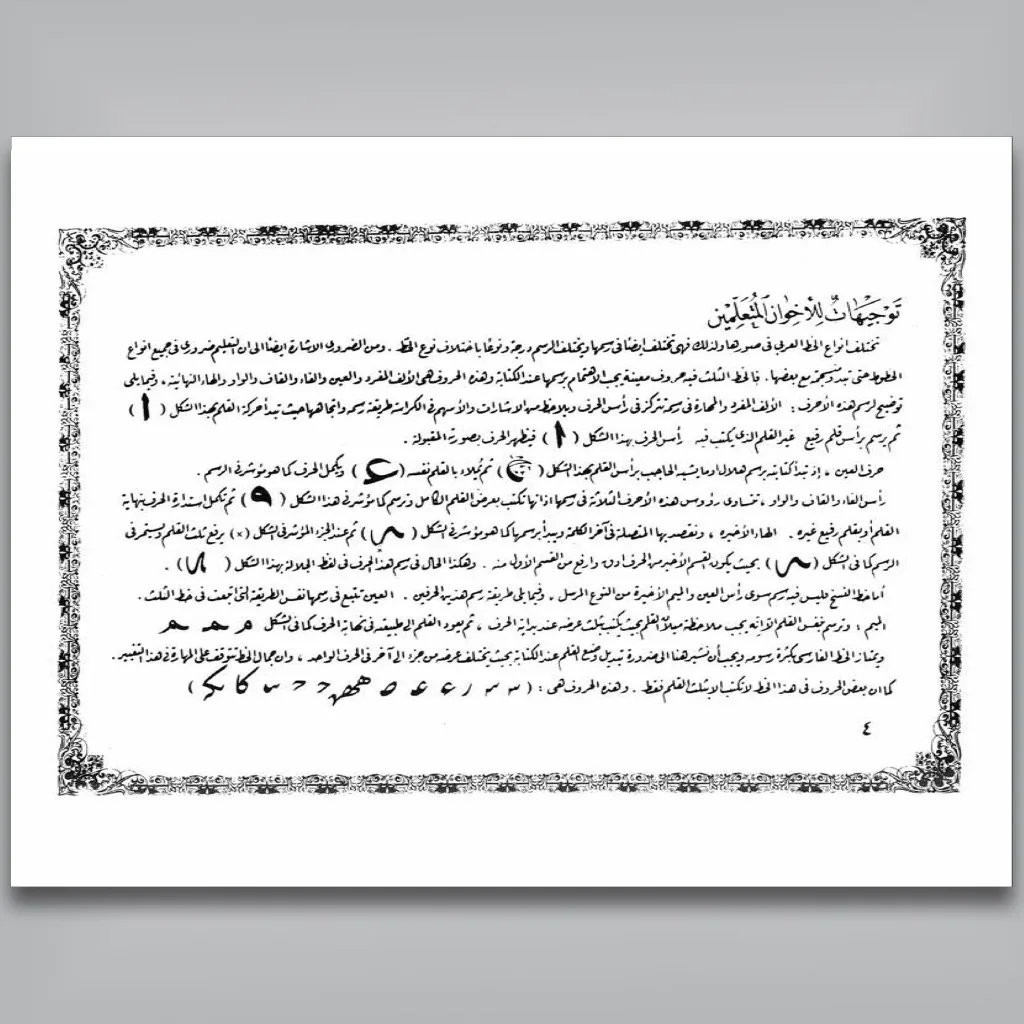 تَوْجِيهَاتٌ لِلأخْوَانِ الْمُتَعَلِّمِيْن
تختلف انواع الخط العربي في صورها ولذلك فهي تختلف ايضا في رسمها ويختلف الرسم درجة ونوعا باختلاف نوع الخط . ومن الضروري الاشارة ايضا الى ان التعليم ضروري في جميع انواع
الخطوط حتى تبدو منسجمة مع بعضها . فالخط الثلث فيه حروف معينة يجب الاهتمام برسمها عند الكتابة وهذه الحروف هي الألف المفرد والعين والفاء والقاف والواو والهاء النهائية ، وفيما يلي
توضيح لرسم هذه الأحرف : الألف المفرد والمهارة في رسمه تتركز في رأس الحرف ويلاحظ من الاشارات والأسهم في الكراسة طريقة رسمه واتجاهها حيث تبدأ حركة القلم بهذا الشكل ( ا )
ثم يرسم برأس قلم رفيع غير القلم الذي يكتب فيه رأس الحرف بهذا الشكل ( ا ) فيظهر الحرف بصورته المقبولة .
حرف العين ، إذ تبدأ كتابته برسم هلال او ما يشبه الحاجب برأس القلم بهذا الشكل ( ) ثم يملاء بالقلم نفسه ( ع ) ويكمل الحرف كما هو مؤشر في الرسم .
رأس الفاء والقاف والواو ، تتساوى رؤوس هذه الأحرف الثلاثة في رسمها اذ انها تكتب بعرض القلم الكامل وترسم كما مؤشر في هذا الشكل ( و ) ثم تكمل استدارة الحرف بنهاية
القلم أو بقلم رفيع غيره . الهاء الأخيره ، ونقصد بها المتصلة في آخر الكلمة ويبدأ برسمها كما هو مؤشر في الشكل ( ) ثم عند الجزء المؤشر في الشكل (×) يرفع ثلث القلم ويستمر في
الرسم كما في الشكل ( ) بحيث يكون القسم الأخير من الحرف ادق وارفع من القسم الأول منه . وهكذا الحال في رسم هذا الحرف في لفظ الجلالة بهذا الشكل ( ) .
أما خط النسخ فليس فيه رسم سوى رأس العين والميم الأخيرة من النوع المرسل . وفيما يلي طريقة رسم هذين الحرفين . العين تتبع في رسمها نفس الطريقة التي اتبعت في خط الثلث .
الميم : وترسم بنفس القلم الا انه يجب ملاحظة ميلان القلم بحيث يكتب بثلث عرضه عند بداية الحرف ، ثم يعود القلم الى طبيعته في نهاية الحرف كما في الشكل م م م
ويمتاز الخط الفارسي بكثرة رسومه ويجب أن نشير هنا الى ضرورة تبديل وضع القلم عند الكتابة بحيث يختلف عرضه من جزء الى آخر في الحرف الواحد ، وان جمال الخط يتوقف على المهارة في هذا التغيير .
كما ان بعض الحروف في هذا الخط لا تكتب الا بثلث القلم فقط . وهذه الحروف هي : ( )
٤